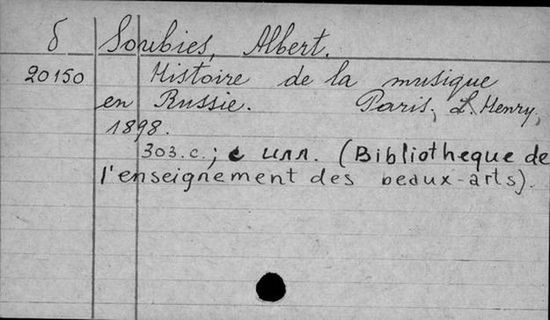 б Soubies, Albert.
20150 Histoire de la musique
en Russie. Paris, L. Henry,
1898.
303.c.; с илл. (Bibliotheque de
l'enseignement des beaux-arts).